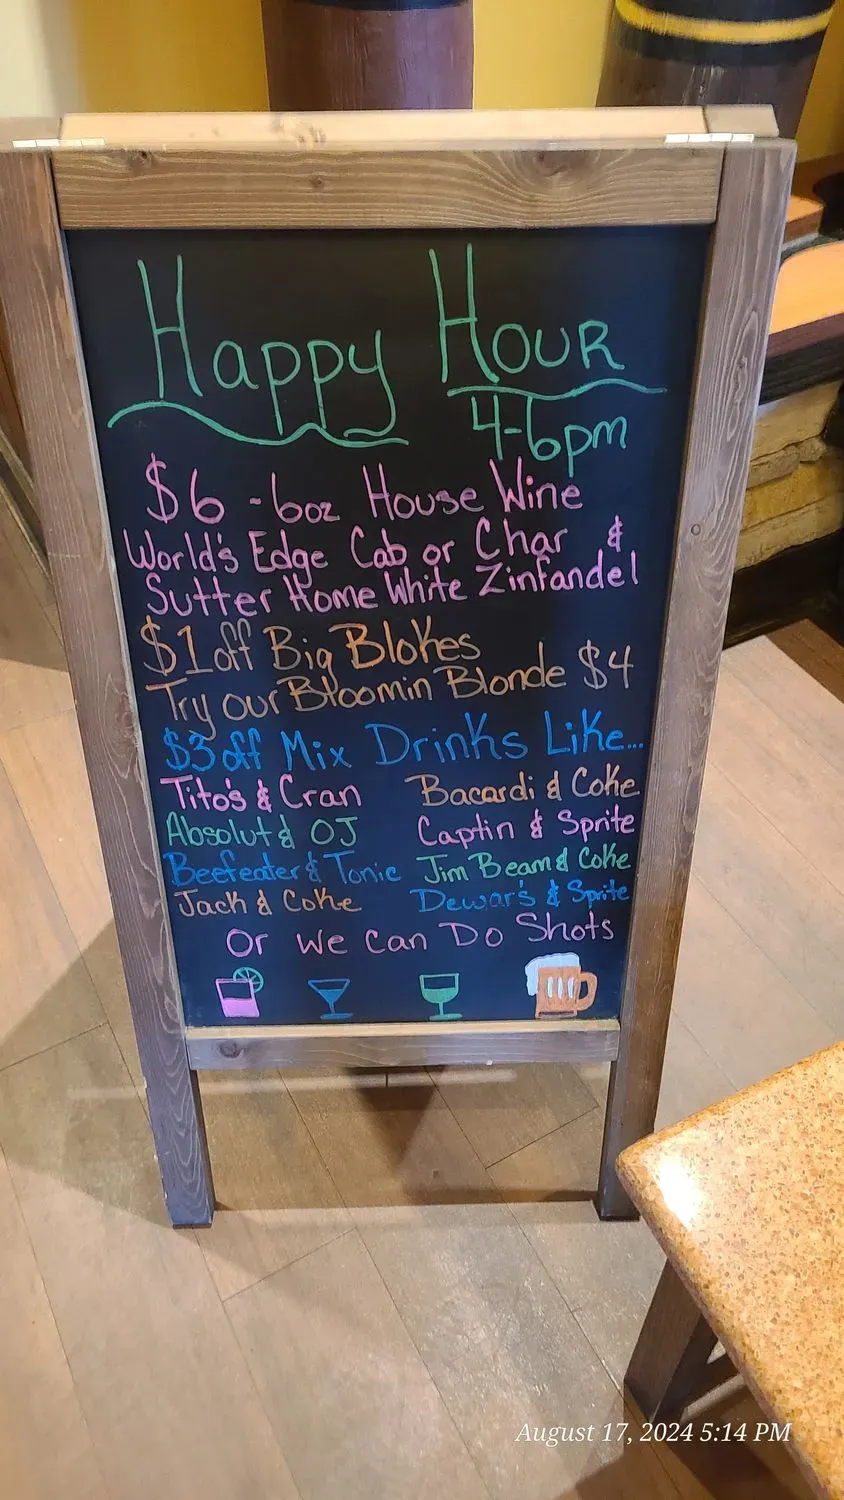 Happy Hour
4-6pm
$6 - 6oz House Wine
World's Edge Cab or Char &
Sutter Home White Zinfandel
$1 off Big Blokes
Try our Bloomin Blonde $4
$3 off Mix Drinks Like...
Tito's & Cran Bacardi & Coke
Absolut & OJ Captin & Sprite
Beefeater & Tonic Jim Beam & Coke
Jack & Coke Dewar's & Sprite
Or We Can Do Shots
August 17, 2024 5:14 PM